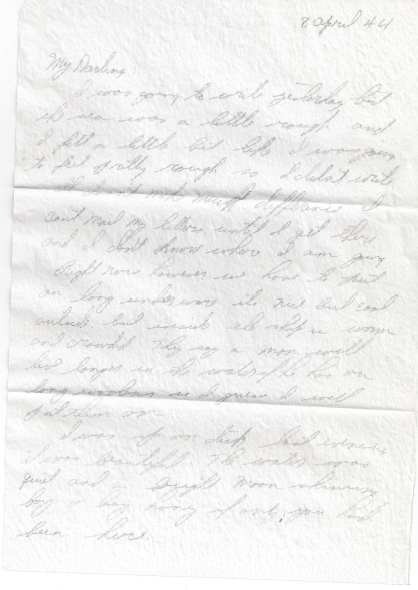 8 April 44
My Darling
I was going to write yesterday but
the sea was a little rough and
I felt a little bit like I was going
to feel pretty rough so I didn't write
it not much difference I
cant mail my letters until I get there
and I don't know where I am going
Right now however we have to put
on long underwear its nice and cool
outside but inside the ship is warm
and crowded They say a man will
live longer in the water if he has on
long as I guess I will
put them on
I was up on deck last evening
it was beautiful The water was
quiet and a bright moon shining
boy o boy honey if only you had
been here.